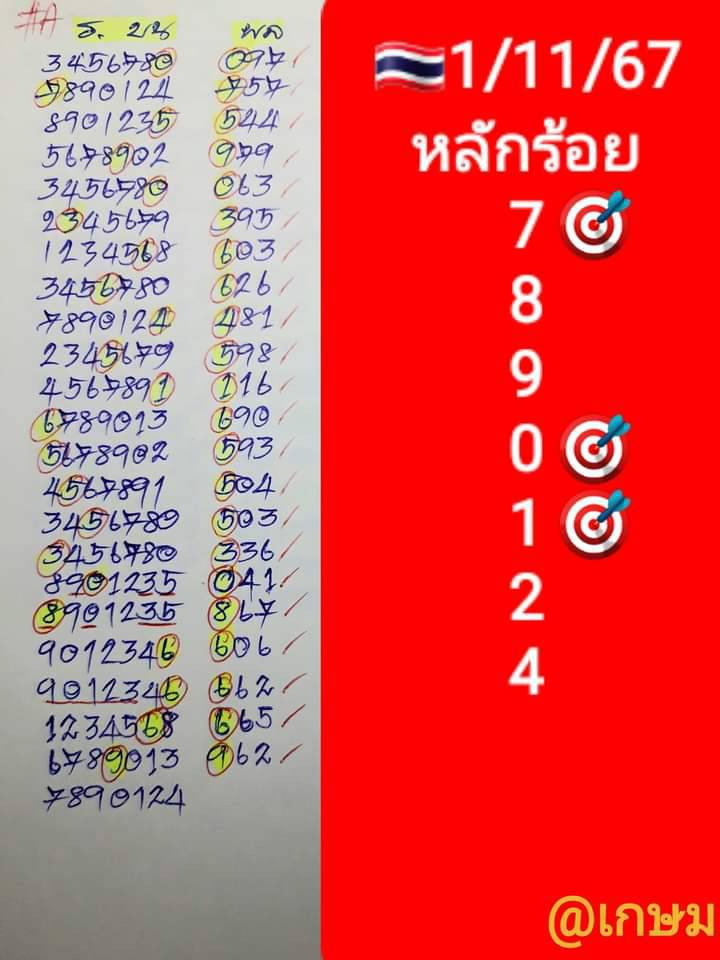 #A ร. บน ผล
3456780 097
7890124 757
8901235 544
5678902 979
3456780 063
2345679 395
1234568 603
3456780 626
7890124 481
2345679 598
4567891 116
6789013 690
5678902 593
4567891 504
3456780 503
3456780 336
8901235 041
8901235 867
9012346 606
9012346 662
1234568 665
6789013 962
7890124
1/11/67
หลักร้อย
7
8
9
0
1
2
4
@เกษม